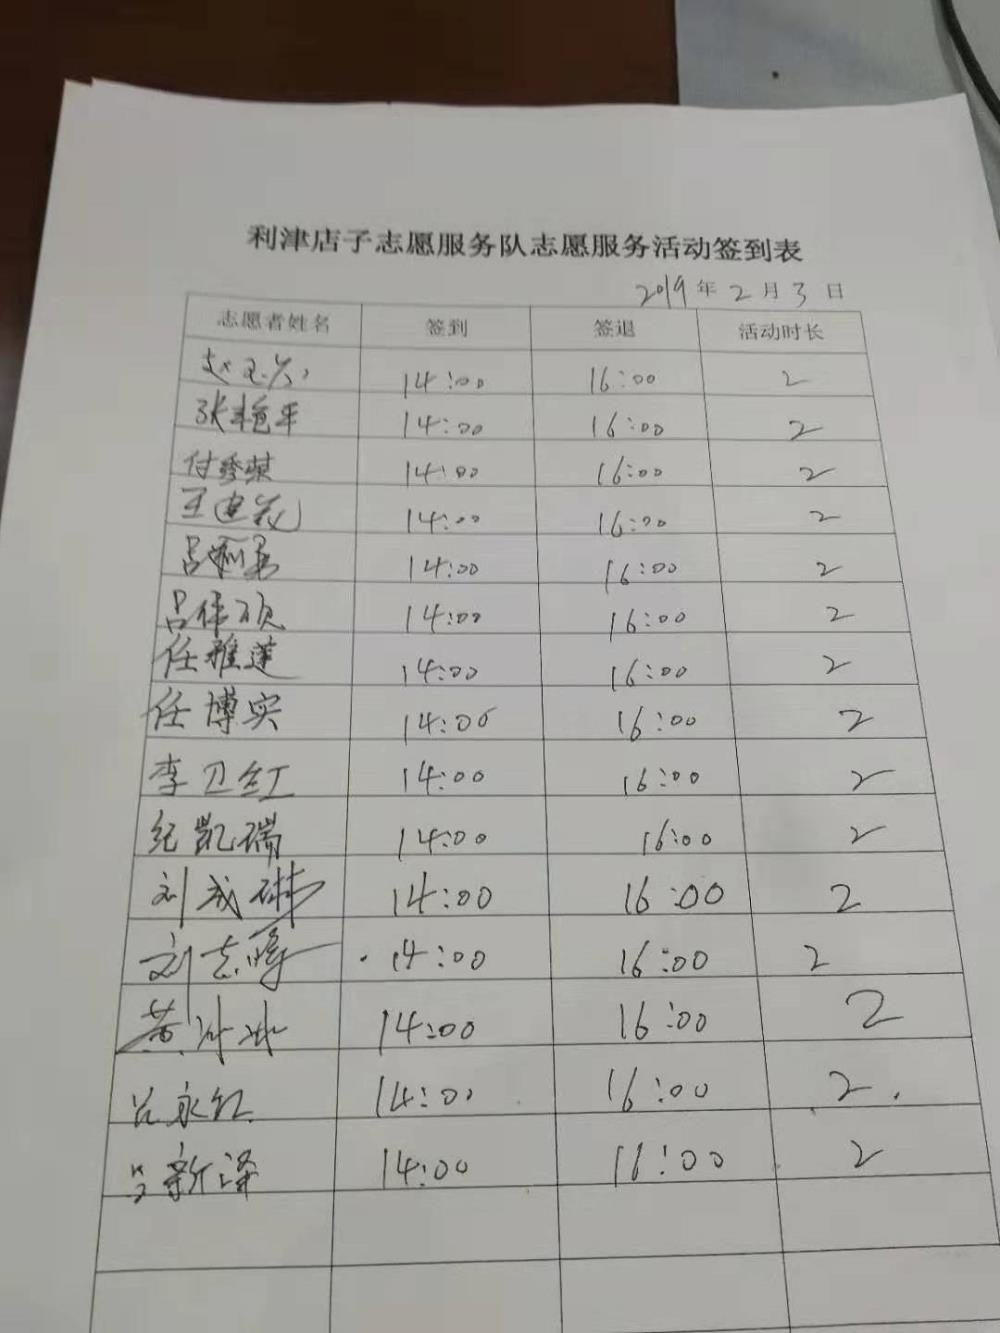 利津店子志愿服务队志愿服务活动签到表
2019年2月3日
志愿者姓名 签到 签退 活动时长
赵 14:00 16:00 2
张艳平 14:00 16:00 2
付秀荣 14:00 16:00 2
王建 14:00 16:00 2
吕 14:00 16:00 2
吕伟 14:00 16:00 2
任雅莲 14:00 16:00 2
任博实 14:00 16:00 2
李卫红 14:00 16:00 2
纪凯瑞 14:00 16:00 2
刘成琳 14:00 16:00 2
刘志峰 14:00 16:00 2
黄 14:00 16:00 2
吕永红 14:00 16:00 2
吕新泽 14:00 16:00 2